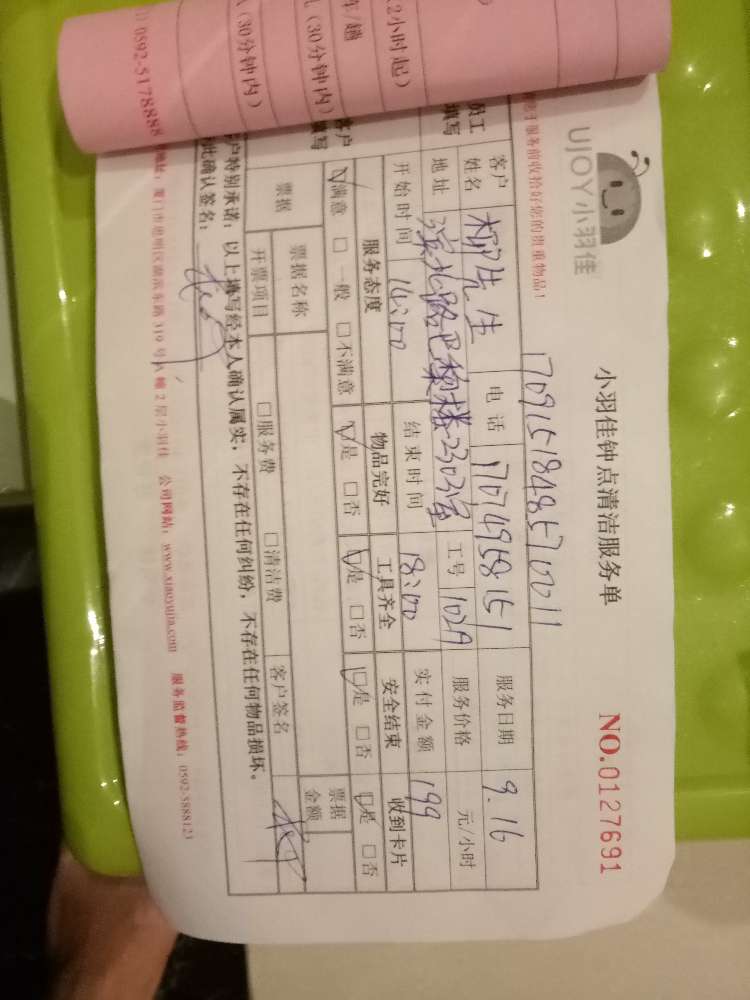 UJOY小羽佳
小羽佳钟点清洁服务单
NO.0127691
服务前收拾好您的贵重物品!
1709151848570011
客户姓名 柳先生 电话 17074958151 服务日期 9.16
地址 滨北路巴黎楼2303室 工号 1029 服务价格 元/小时
开始时间 14:00 结束时间 18:00 实付金额 199
服务态度 物品完好 工具齐全 安全结束 收到卡片
☑满意 □一般 □不满意 ☑是 □否 ☑是 □否 ☑是 □否 ☑是 □否
票据 票据名称 票据金额
开票项目 □服务费 □清洁费 客户签名
客户特别承诺:以上填写经本人确认属实,不存在任何纠纷,不存在任何物品损坏。
此确认签名:
0592-5178888 地址:厦门市思明区湖滨东路319号A幢2层小羽佳 公司网站:www.xiaoyujia.com 服务监督热线:0592-5888123
2小时起)
车/趟
(30分钟内)
(30分钟内)
员工填写
客户填写